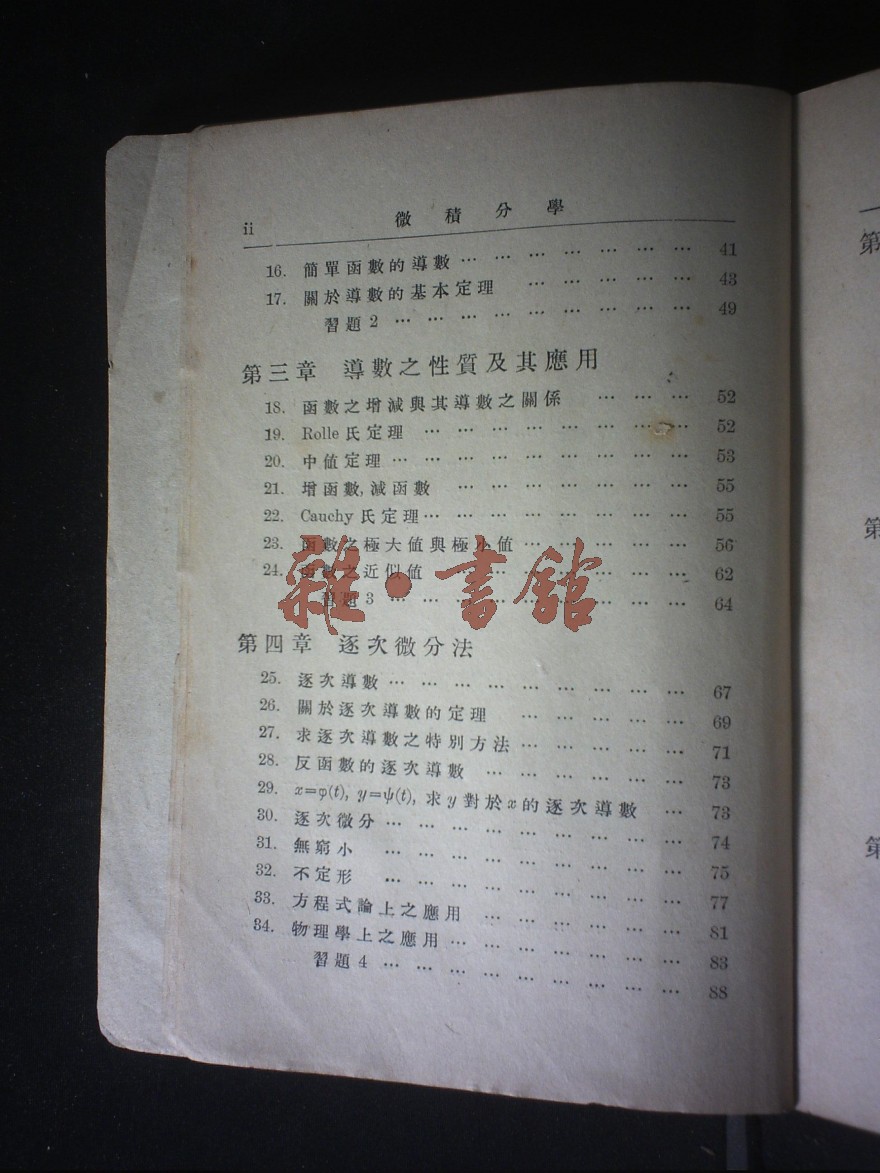 ii 微積分學
16. 簡單函數的導數 … … … … … … … 41
17. 關於導數的基本定理 … … … … … 43
習題 2 … … … … … … … … … 49
第三章 導數之性質及其應用
18. 函數之增減與其導數之關係 … … … 52
19. Rolle 氏定理 … … … … … … … … 52
20. 中値定理 … … … … … … … … … 53
21. 增函數,減函數 … … … … … … … 55
22. Cauchy 氏定理 … … … … … … … … 55
23. 函數之極大値與極小値 … … … … … 56
24. 函數之近似値 … … … … … … … 62
習題 3 … … … … … … … … … 64
第四章 逐次微分法
25. 逐次導數 … … … … … … … … … 67
26. 關於逐次導數的定理 … … … … … 69
27. 求逐次導數之特別方法 … … … … … 71
28. 反函數的逐次導數 … … … … … … 73
29. x=φ(t), y=ψ(t), 求 y 對於 x 的逐次導數 … 73
30. 逐次微分 … … … … … … … … … 74
31. 無窮小 … … … … … … … … … 75
32. 不定形 … … … … … … … … … 77
33. 方程式論上之應用 … … … … … … 81
34. 物理學上之應用 … … … … … … … 83
習題 4 … … … … … … … … … 88
雜·書館
第
第
第